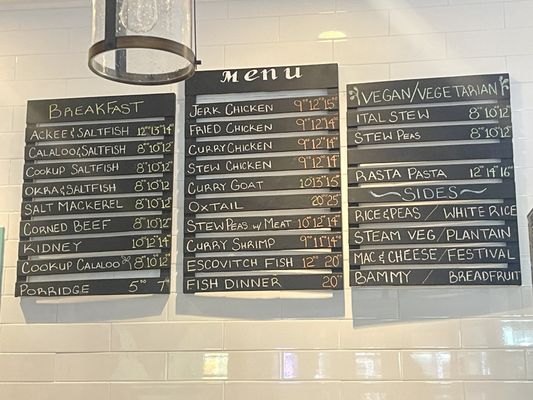 BREAKFAST
ACKEE & SALTFISH 12 13 14
CALALOO & SALTFISH 8 10 12
COOKUP SALTFISH 8 10 12
OKRA & SALTFISH 8 10 12
SALT MACKEREL 8 10 12
CORNED BEEF 8 10 12
KIDNEY 10 12 14
COOKUP CALALOO 8 10 12
PORRIDGE 5 7
MENU
JERK CHICKEN 9 12 15
FRIED CHICKEN 9 12 14
CURRY CHICKEN 9 12 14
STEW CHICKEN 9 12 14
CURRY GOAT 10 13 15
OXTAIL 20 25
STEW PEAS W/ MEAT 10 12 14
CURRY SHRIMP 9 11 14
ESCOVITCH FISH 12 20
FISH DINNER 20
VEGAN/VEGETARIAN
ITAL STEW 8 10 12
STEW PEAS 8 10 12
RASTA PASTA 12 14 16
~ SIDES ~
RICE & PEAS / WHITE RICE
STEAM VEG / PLANTAIN
MAC & CHEESE / FESTIVAL
BAMMY / BREADFRUIT